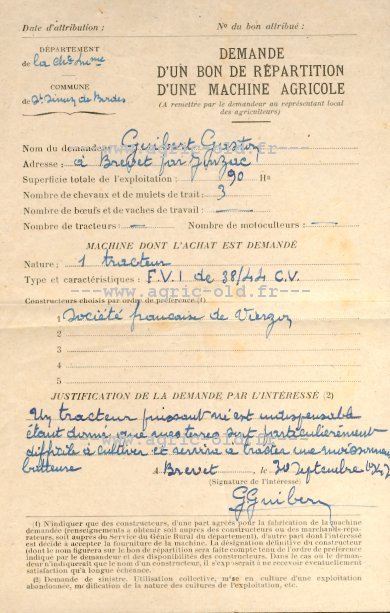 Date d'attribution :
No du bon attribué :
DÉPARTEMENT
de la Chte Mme
COMMUNE
de
DEMANDE
D'UN BON DE RÉPARTITION
D'UNE MACHINE AGRICOLE
(A remettre par le demandeur au représentant local
des agriculteurs)
Nom du demandeur Guibert Gaston
Adresse : à Brevet par Jonzac
Superficie totale de l'exploitation : 90 Ha
Nombre de chevaux et de mulets de trait : 3
Nombre de bœufs et de vaches de travail : —
Nombre de tracteurs : — Nombre de motoculteurs : —
MACHINE DONT L'ACHAT EST DEMANDÉ
Nature : 1 tracteur
Type et caractéristiques : F.V.1 de 38/44 C.V.
---www.agric-old.fr---
Constructeurs choisis par ordre de préférence (1)
1 Société française de Vierzon
2
3
4
5
JUSTIFICATION DE LA DEMANDE PAR L'INTÉRESSÉ (2)
Un tracteur puissant m'est indispensable
étant donné que mes terres sont particulièrement
difficile à cultiver et servira à tracter une moissonneuse
batteuse
A Brevet, le 30 Septembre 1947
(Signature de l'intéressé)
G Guibert
(1) N'indiquer que des constructeurs, d'une part agréés pour la fabrication de la machine
demandée (renseignements à obtenir soit auprès des constructeurs ou des marchands-repara-
teurs, soit auprès du Service du Génie Rural du département), d'autre part dont l'intéressé
est décidé à accepter la fourniture de la machine. La désignation définitive du constructeur
(dont le nom figurera sur le bon de répartition sera faite compte tenu de l'ordre de préférence
indiqué par le demandeur et des disponibilités des constructeurs. Dans le cas où le deman-
deur n'indiquerait que le nom d'un constructeur, il s'exposerait à ne recevoir éventuellement
satisfaction qu'à longue échéance.
(2) Demande de sinistré. Utilisation collective, mise en culture d'une exploitation
abandonnée, modification de la nature des cultures de l'exploitation, etc.